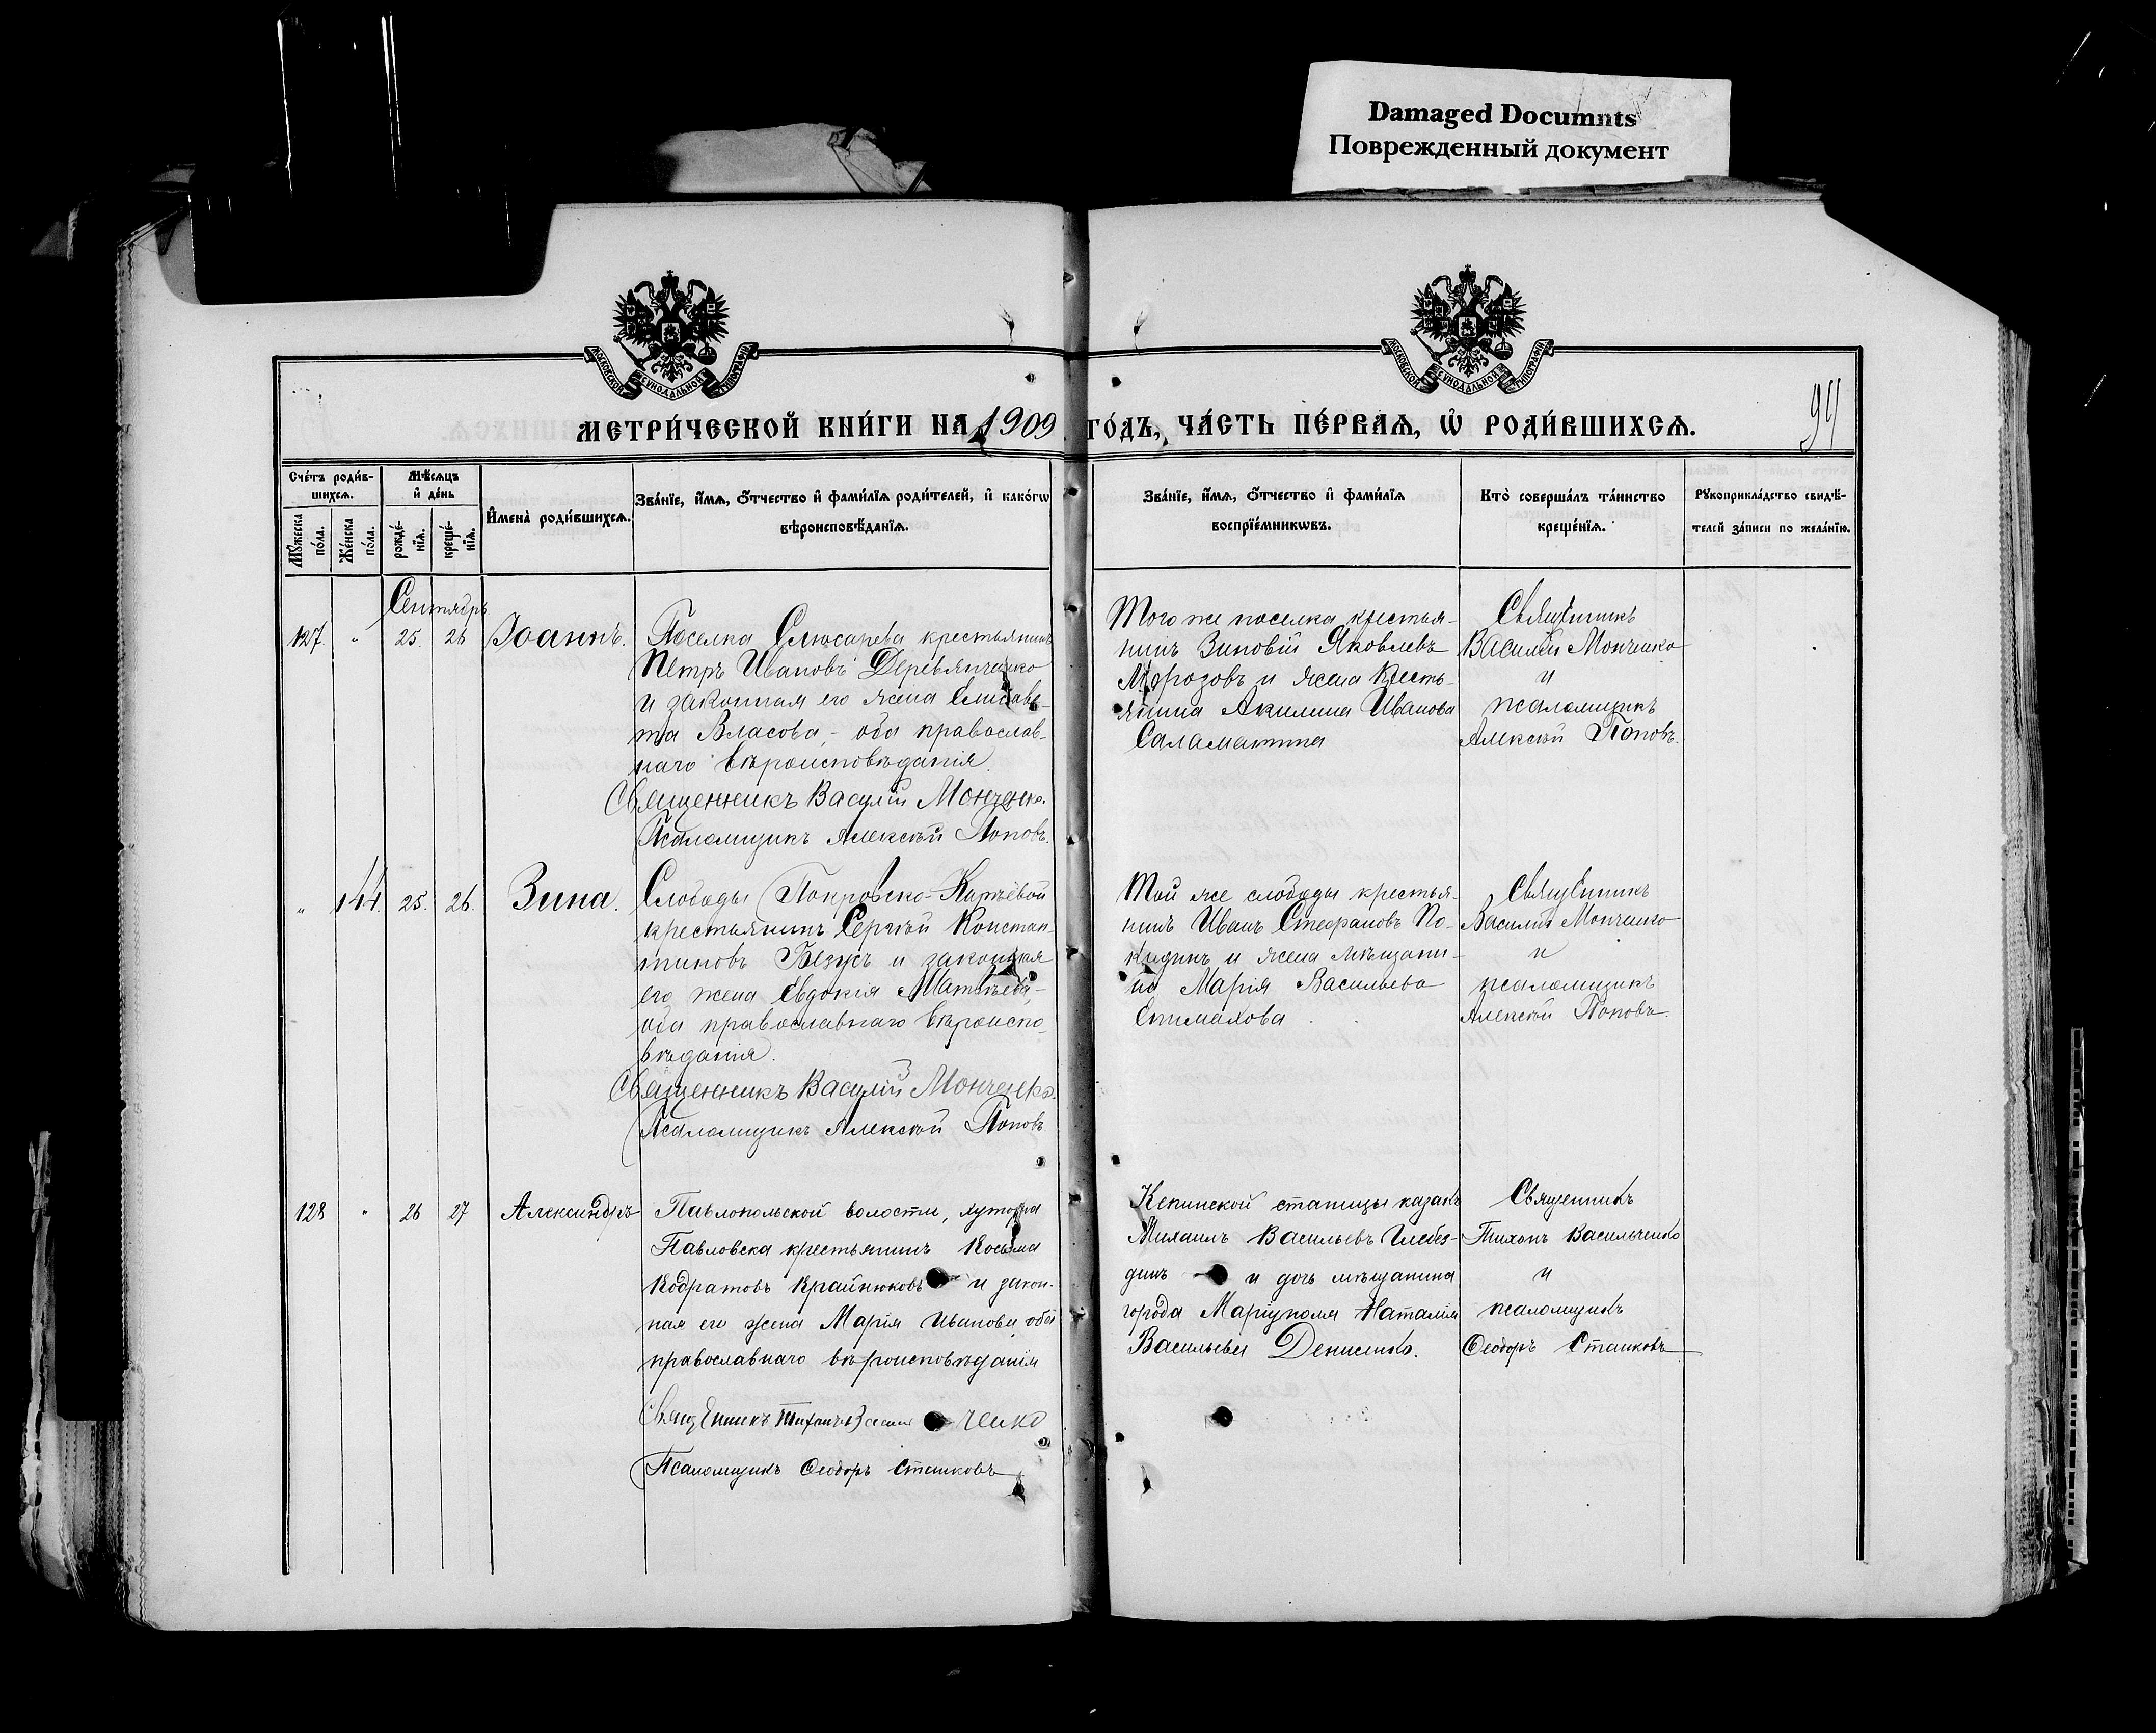 Damaged Documnts
Поврежденный документ
МОСКОВСКОЙ СѴНОДАЛЬНОЙ ТИПОГРАФІИ
МОСКОВСКОЙ СѴНОДАЛЬНОЙ ТИПОГРАФІИ
МЕТРИ́ЧЕСКОЙ КНИ́ГИ НА 1909 ГО́ДЪ, ЧА́СТЬ ПЕ́РВАѦ, Ѡ҆ РОДИ́ВШИХСѦ.
94
Сче́тъ роди́в-
шихсѧ.
Мѣ́сѧцъ
и҆ де́нь
Мꙋ́жеска по́ла.
Же́нска по́ла.
рожде́-нїѧ.
креще́-нїѧ.
И҆мена̀ роди́вшихсѧ.
Зва́нїе, и҆́мѧ, ѻ҆́тчество и҆ фами́лїѧ роди́телей, и҆ како́гѡ
вѣроисповѣ́данїѧ.
Зва́нїе, и҆́мѧ, ѻ҆́тчество и҆ фами́лїѧ
воспрїе́мникѡвъ.
Кто̀ соверша́лъ та́инство
креще́нїѧ.
Рꙋкоприкла́дство свидѣ́-
телей за́писи по жела́нїю.
Сентябрь
127. " 25. 26 Іоаннъ.
Поселка Слюсарева крестьянинъ
Петръ Ивановъ Деревянченко
и законная его жена Елисаве-
та Власова, - оба православ-
наго вѣроисповѣданія.
Священникъ Василій Монченко.
Псаломщикъ Алексѣй Поповъ.
Того же поселка крестья-
нинъ Зиновій Яковлевъ
Морозовъ и жена кресть-
янина Акилина Иванова
Саламатина
Священникъ
Василій Монченко
и
псаломщикъ
Алексѣй Поповъ.
" 144. 25. 26. Зина.
Слободы Покровско-Кирѣевой
крестьянинъ Сергѣй Констан-
тиновъ Безусъ и законная
его жена Евдокія Матвѣева, -
оба православнаго вѣроиспо-
вѣданія.
Священникъ Василій Монченко.
Псаломщикъ Алексѣй Поповъ
Той же слободы крестья-
нинъ Иванъ Стефановъ По-
кидинъ и жена мѣщани-
на Марія Васильева
Епимахова
Священникъ
Василій Монченко
и
псаломщикъ
Алексѣй Поповъ.
128 " 26 27 Александръ
Павлопольской волости, хутора
Павловска крестьянинъ Косьма
Кодратовъ Крайнюковъ и закон-
ная его жена Марія Иванова, оба
православнаго вѣроисповѣданія
Священникъ Тихонъ Василь ченко
Псаломщикъ Ѳеодоръ Станковъ
станицы казакъ
Михаилъ Васильевъ
и дочь мѣщанина
города Маріуполя Наталія
Васильева Денисенко.
Священникъ
Тихонъ Васильченко
и
псаломщикъ
Ѳеодоръ Станковъ